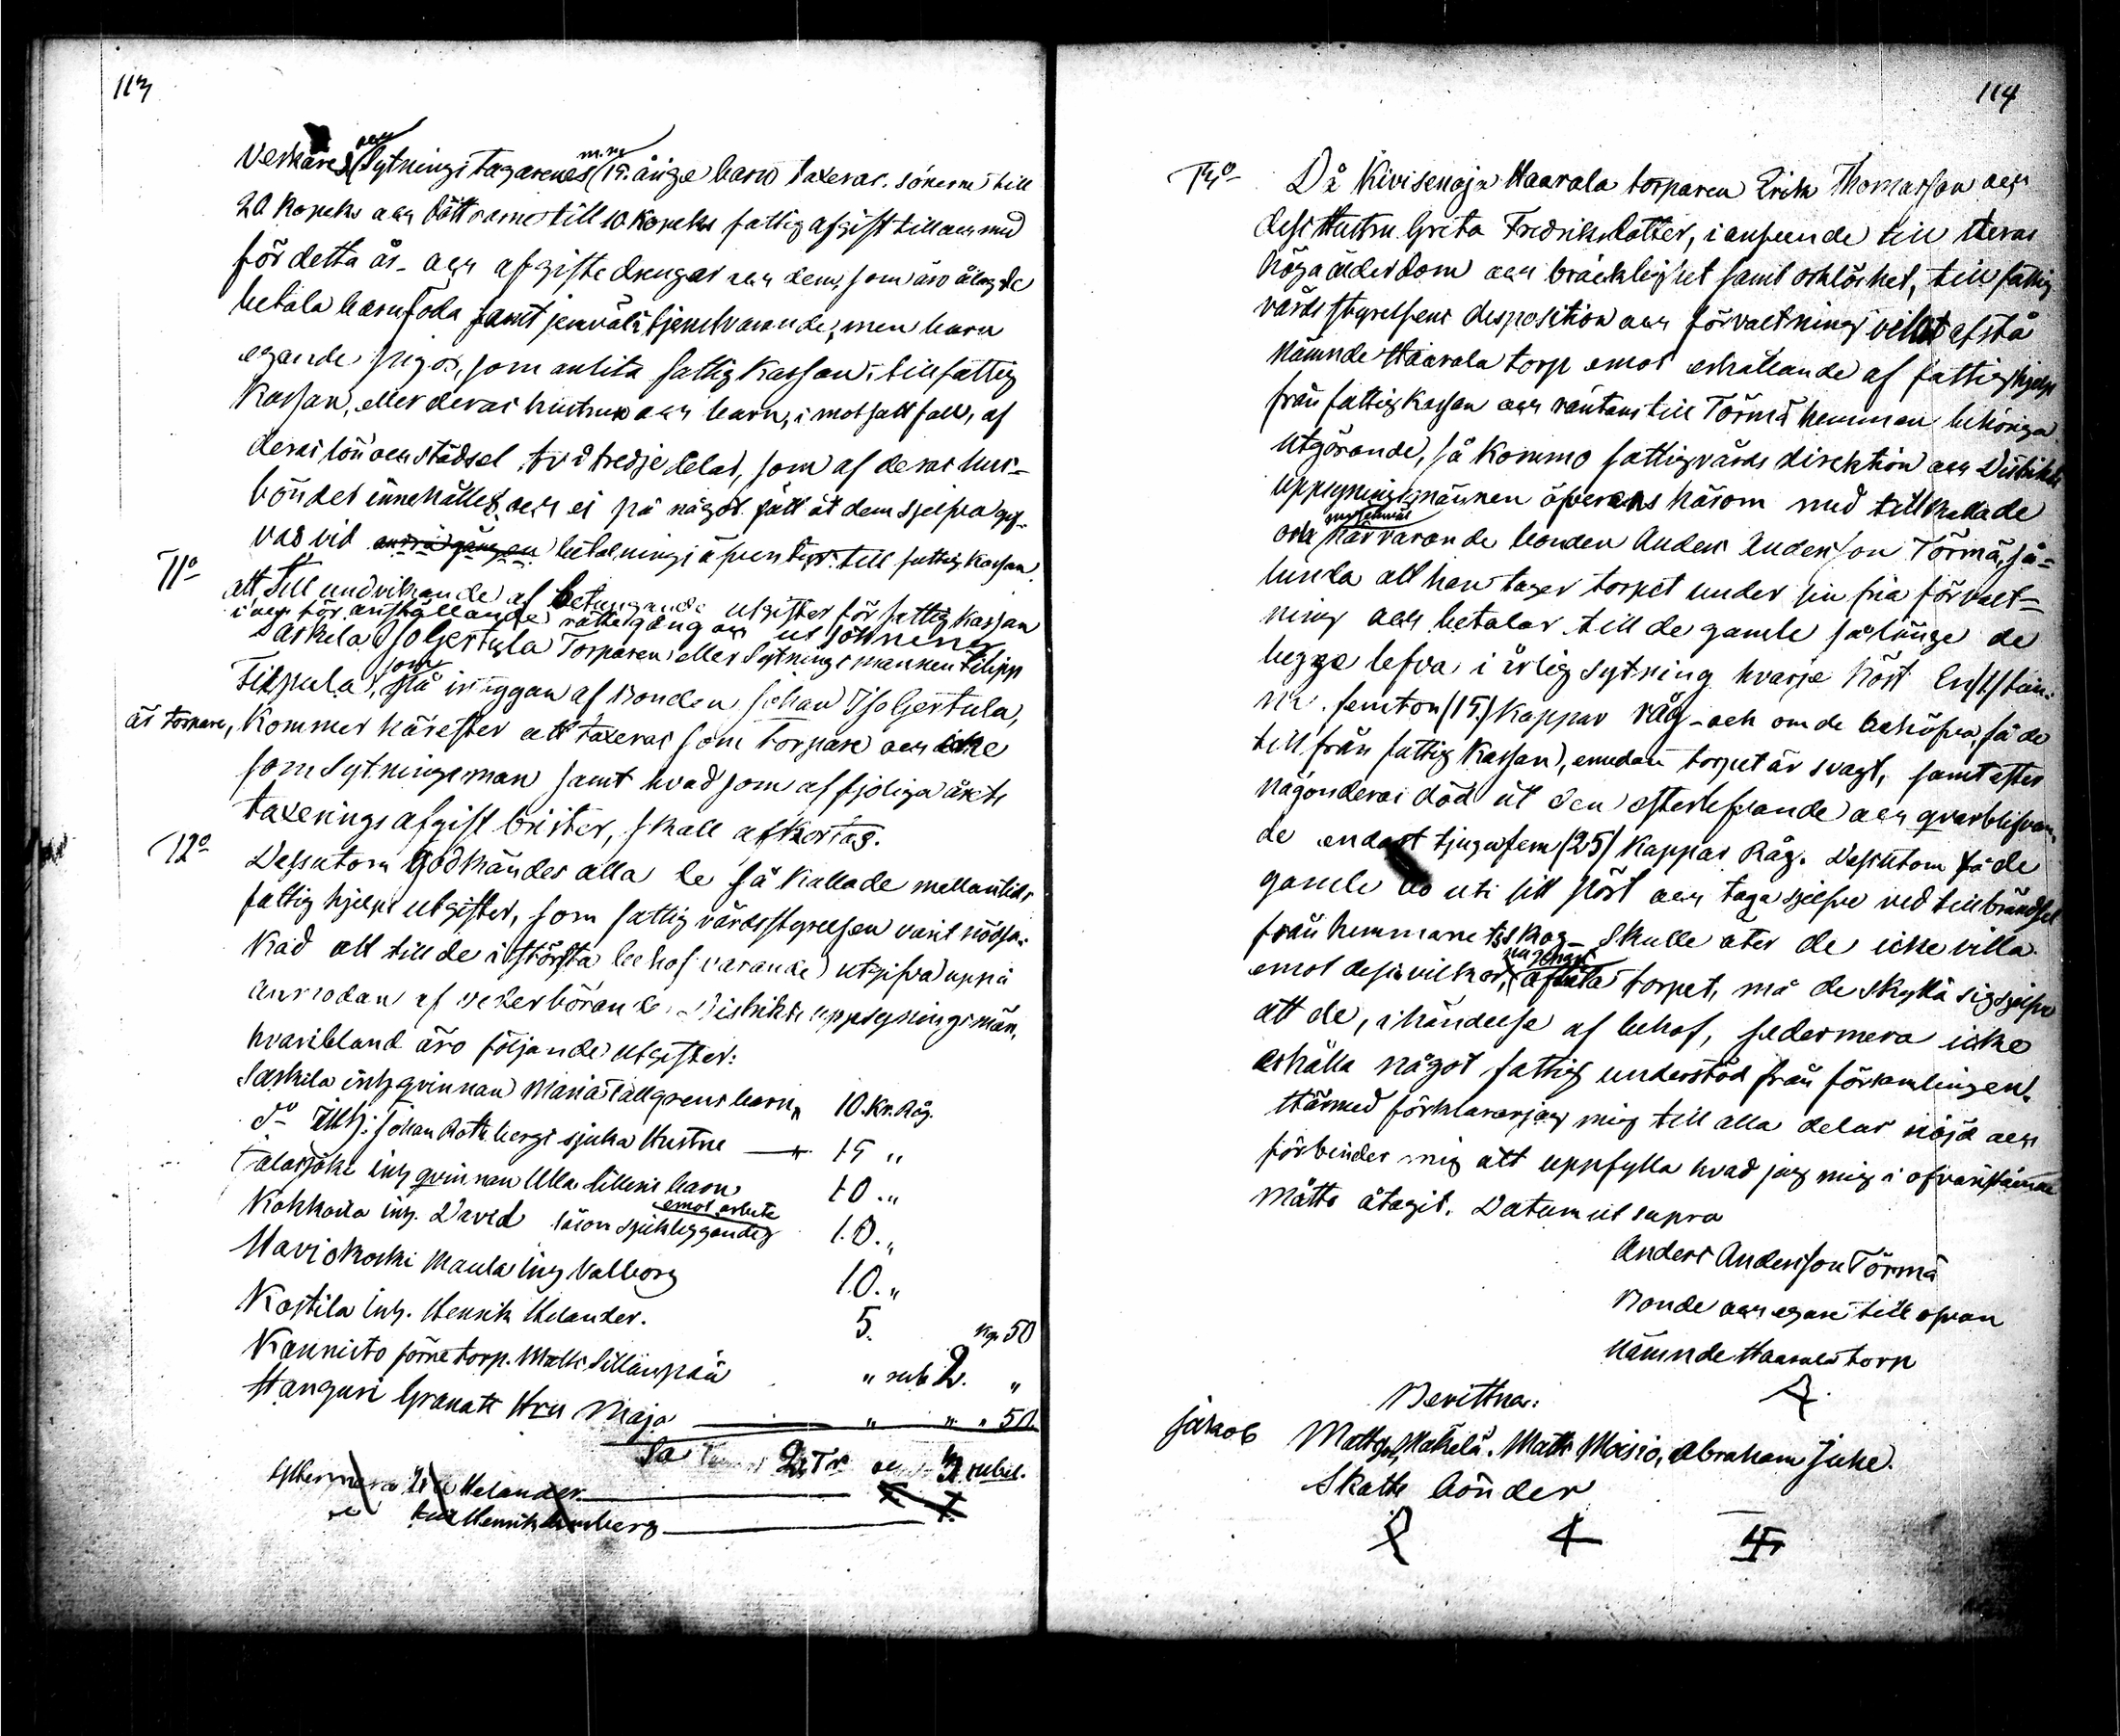 113
och m. m.
Verkares Sytningstagarenes 15. årige barn taxeras. sönerne till
20 Kopeks och döttrarne till 10 Kopeks fattig afgift till och med
för detta år – och afgifte drengar och dem, som äro ålagde
betala barnföda samt jemväl i tjenst varande, men barn
egande pigor, som anlita fattig Kassan, till fattig
Kassan, eller deras hustrur och barn, i motsatt fall, af
deras lön och städsel två tredje delar, som af deras hus-
bönder innehålles och ej på något sätt åt dem sjelfva gif-
vas vid betalnings äfventyr till fattig Kassan.
11o att till undvikande af betungande utgifter för fattig Kassan
i och för anställande rättegång och utsökning
Särkilä Isojertula Torparen eller Sytningsmannen Filipp
Filpula, som på inryggan af Bonden Johan Isojertula,
är torpare, Kommer härefter att taxeras som Torpare och icke
som Sytningsman samt hvad som af fjoliga årets
taxerings afgift brister, skall afkortas.
12o Dessutom godkändes alla de så kallade mellantids
fattig hjelps utgifter, som fattigvårdsstyrelsen varit nödsa-
kad att till de i största behof varande utgifva uppå
anmodan af vederbörande Distrikts uppsyningsmän,
hvaribland äro följande utgifter:
Särkilä inh qvinnan Maria Tallgrens barn „ 10. Kr. Råg.
do Inh: Johan Rothbergs sjuka Hustru — 15 „
Jalasjoki inh qvinnan Ulla Silléns barn 10. „
emot arbete
Kokkoila inh. David sjukliggande 10. „
Harjokoski Maula inh Valborg 10. „
Kostila Inh. Henrik Helander. 5. Kp. 50
Kannisto förre torp. Matts Sillanpää „ rub 2. „
Hanguri Granats Hru Maja „ „ „ 50.
Sa 2 Tr och 3 rubel.
Helander
Henrik

114
13o Då Kivisenoja Haarala torparen Erik Thomasson och
dess Hustru Greta Fredriksdotter, i anseende till deras
höga ålderdom och bräcklighet samt orklöshet, till fattig
vårds styrelsens desposition och förvaltning velat afstå
nämnde Haarala torp emot erhållande af fattighjelp
från fattig Kassan och räntans till Törmä hemman behöriga
utgörande, så kommo fattigvårds direktion och Distrikts
uppsyningsmännen öfverens härom med tillkallade
och närvarande bonden Anders Andersson Törmä, så-
lunda att han tager torpet under sin fria förvalt-
ning och betalar till de gamle så länge de
begge lefva i årlig sytning hvarje höst En /1/ tun-
na femton (15.) Kappar råg – och om de behöfva, få de
till från fattig Kassan, emedan torpet är svagt, samt efter
någonderas död åt den efterlefvande och qvarblifvan-
de endast tjugufem /25/ Kappar Råg. Dessutom få de
gamle bo uti sitt pört och taga sjelfve ved till brändsel
från hemmanets skog – Skulle åter de icke villa
emot dessa vilkor, torpet, må de skylla sig sjelfve
att de, i händelse af behof, sedermera icke
erhålla något fattig understöd från församlingen.
Härmed förklarar jag mig till alla delar nöjd och
förbinder mig att uppfylla hvad jag mig i ofvanstående
måtto åtagit. Datum ut supra
Anders Andersson Törmä
Bonde och egare till ofvan
nämnde Haarala torp
Bevittna:
Jakob Mattss. Mäkelä. Matts Moisio, Abraham Juke.
Skatte bönder